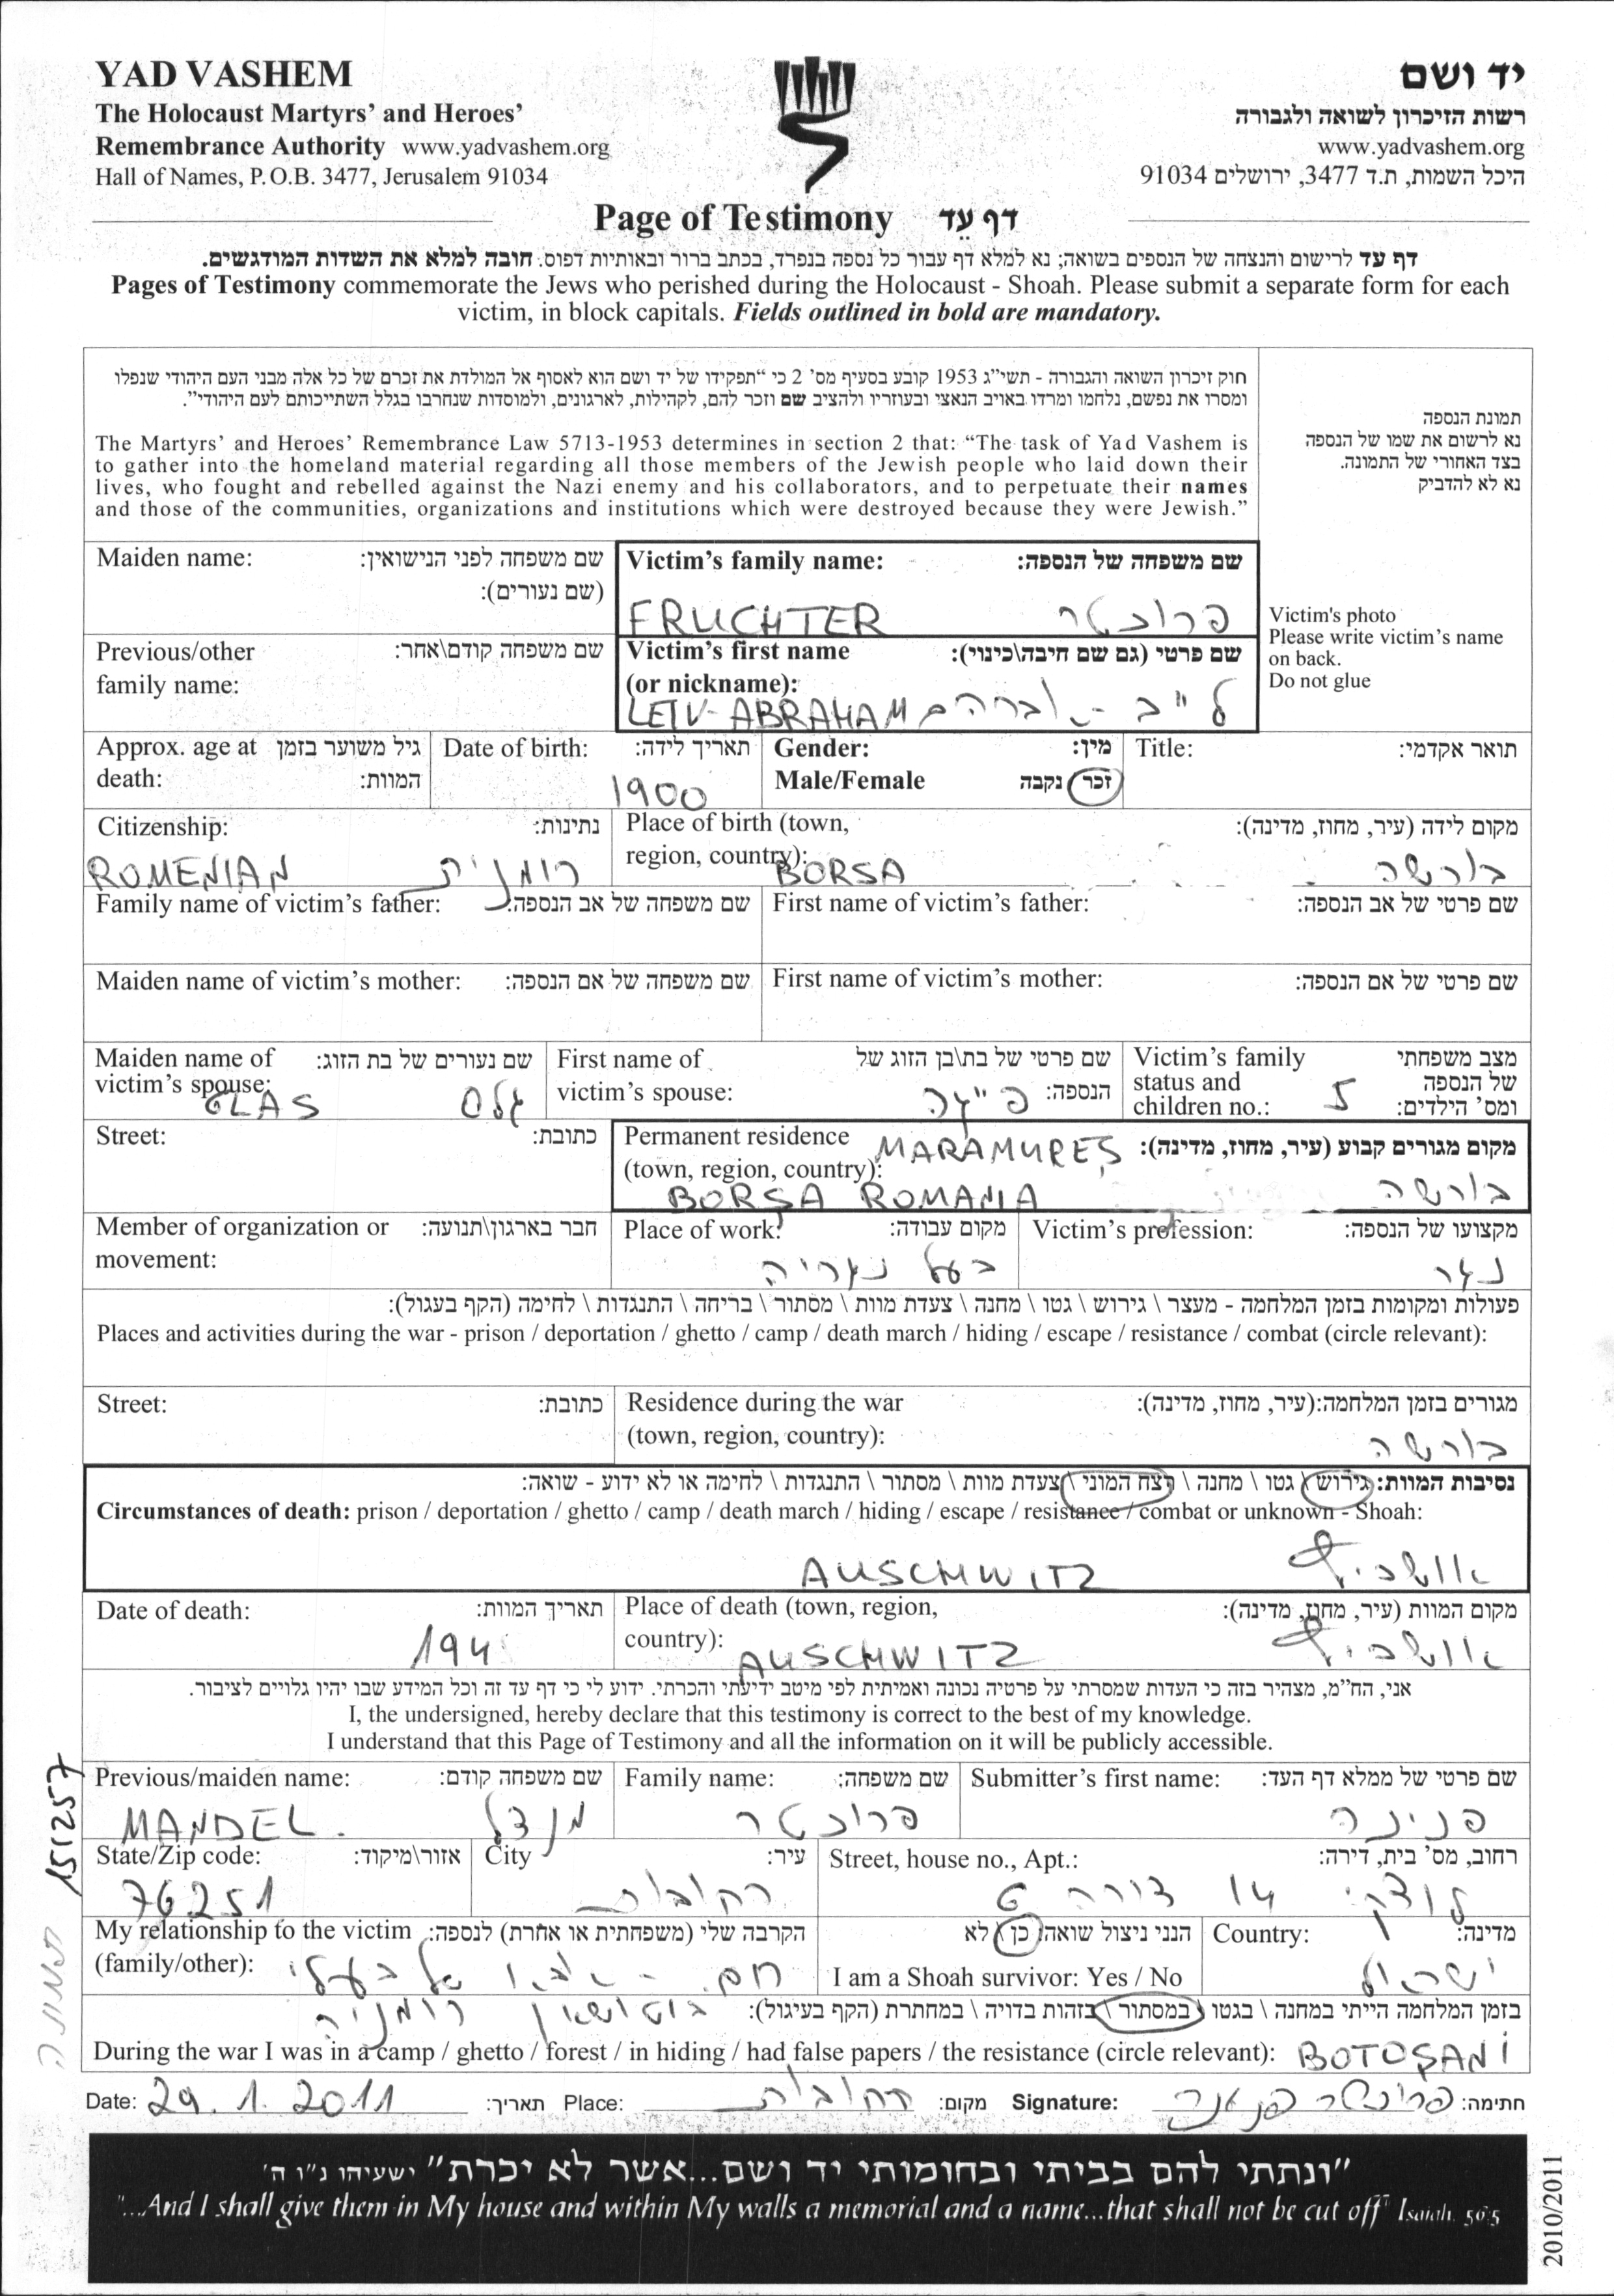 YAD VASHEM
The Holocaust Martyrs' and Heroes'
Remembrance Authority www.yadvashem.org
Hall of Names, P.O.B. 3477, Jerusalem 91034
יד ושם
רשות הזיכרון לשואה ולגבורה
www.yadvashem.org
היכל השמות, ת.ד 3477, ירושלים 91034
Page of Testimony דף עֵד
דף עד לרישום והנצחה של הנספים בשואה; נא למלא דף עבור כל נספה בנפרד, בכתב ברור ובאותיות דפוס. חובה למלא את השדות המודגשים.
Pages of Testimony commemorate the Jews who perished during the Holocaust - Shoah. Please submit a separate form for each
victim, in block capitals. Fields outlined in bold are mandatory.
חוק זיכרון השואה והגבורה - תשי"ג 1953 קובע בסעיף מס' 2 כי "תפקידו של יד ושם הוא לאסוף אל המולדת את זכרם של כל אלה מבני העם היהודי שנפלו
ומסרו את נפשם, נלחמו ומרדו באויב הנאצי ובעוזריו ולהציב שם וזכר להם, לקהילות, לארגונים, ולמוסדות שנחרבו בגלל השתייכותם לעם היהודי".
The Martyrs' and Heroes' Remembrance Law 5713-1953 determines in section 2 that: "The task of Yad Vashem is
to gather into the homeland material regarding all those members of the Jewish people who laid down their
lives, who fought and rebelled against the Nazi enemy and his collaborators, and to perpetuate their names
and those of the communities, organizations and institutions which were destroyed because they were Jewish."
תמונת הנספה
נא לרשום את שמו של הנספה
בצד האחורי של התמונה.
נא לא להדביק
Victim's photo
Please write victim's name
on back.
Do not glue
Maiden name: שם משפחה לפני הנישואין:
(שם נעורים):
Victim's family name: שם משפחה של הנספה:
FRUCHTER פרוכטר
Previous/other שם משפחה קודם\אחר:
family name:
Victim's first name שם פרטי (גם שם חיבה\כינוי):
(or nickname):
LEIV-ABRAHAM לייב - אברהם
Approx. age at גיל משוער בזמן
death: המוות:
Date of birth: תאריך לידה:
1900
Gender: מין:
Male/Female זכר נקבה
Title: תואר אקדמי:
Citizenship: נתינות:
ROMENIAN רומנית
Place of birth (town, מקום לידה (עיר, מחוז, מדינה):
region, country):
BORSA בורשה
Family name of victim's father: שם משפחה של אב הנספה:
First name of victim's father: שם פרטי של אב הנספה:
Maiden name of victim's mother: שם משפחה של אם הנספה:
First name of victim's mother: שם פרטי של אם הנספה:
Maiden name of שם נעורים של בת הזוג:
victim's spouse:
GLAS גלס
First name of שם פרטי של בת\בן הזוג של
victim's spouse: הנספה:
פייגה
Victim's family מצב משפחתי
status and של הנספה
children no.: 5 ומס' הילדים:
Street: כתובת:
Permanent residence MARAMUREȘ מקום מגורים קבוע (עיר, מחוז, מדינה):
(town, region, country):
BORSA ROMANIA בורשה
Member of organization or חבר בארגון\תנועה:
movement:
Place of work: מקום עבודה:
בעל נגריה
Victim's profession: מקצועו של הנספה:
נגר
פעולות ומקומות בזמן המלחמה - מעצר \ גירוש \ גטו \ מחנה \ צעדת מוות \ מסתור \ בריחה \ התנגדות \ לחימה (הקף בעגול):
Places and activities during the war - prison / deportation / ghetto / camp / death march / hiding / escape / resistance / combat (circle relevant):
Street: כתובת:
Residence during the war מגורים בזמן המלחמה:(עיר, מחוז, מדינה):
(town, region, country):
בורשה
נסיבות המוות: גירוש \ גטו \ מחנה \ רצח המוני \ צעדת מוות \ מסתור \ התנגדות \ לחימה או לא ידוע - שואה:
Circumstances of death: prison / deportation / ghetto / camp / death march / hiding / escape / resistance / combat or unknown - Shoah:
AUSCHWITZ אושביץ
Date of death: תאריך המוות:
194
Place of death (town, region, מקום המוות (עיר, מחוז, מדינה):
country):
AUSCHWITZ אושביץ
אני, הח"מ, מצהיר בזה כי העדות שמסרתי על פרטיה נכונה ואמיתית לפי מיטב ידיעתי והכרתי. ידוע לי כי דף עד זה וכל המידע שבו יהיו גלויים לציבור.
I, the undersigned, hereby declare that this testimony is correct to the best of my knowledge.
I understand that this Page of Testimony and all the information on it will be publicly accessible.
Previous/maiden name: שם משפחה קודם:
MANDEL. מנדל
Family name: שם משפחה:
פרוכטר
Submitter's first name: שם פרטי של ממלא דף העד:
פנינה
State/Zip code: אזור\מיקוד:
76251
City עיר:
רחובות
Street, house no., Apt.: רחוב, מס' בית, דירה:
14 דירה 6
My relationship to the victim הקרבה שלי (משפחתית או אחרת) לנספה:
(family/other):
חם - אביו של בעלי
הנני ניצול שואה: כן \ לא
I am a Shoah survivor: Yes / No
Country: מדינה:
ישראל
בזמן המלחמה הייתי במחנה \ בגטו \ במסתור \ בזהות בדויה \ במחתרת (הקף בעיגול):
בוטושאן רומניה
During the war I was in a camp / ghetto / forest / in hiding / had false papers / the resistance (circle relevant): BOTOȘANI
Date: 29.1.2011 תאריך: Place: רחובות מקום: Signature: פרוכטר פנינה חתימה:
"ונתתי להם בביתי ובחומותי יד ושם...אשר לא יכרת" ישעיהו נ"ו ה'
"...And I shall give them in My house and within My walls a memorial and a name...that shall not be cut off" Isaiah. 56:5
2010/2011
155257
תמונה